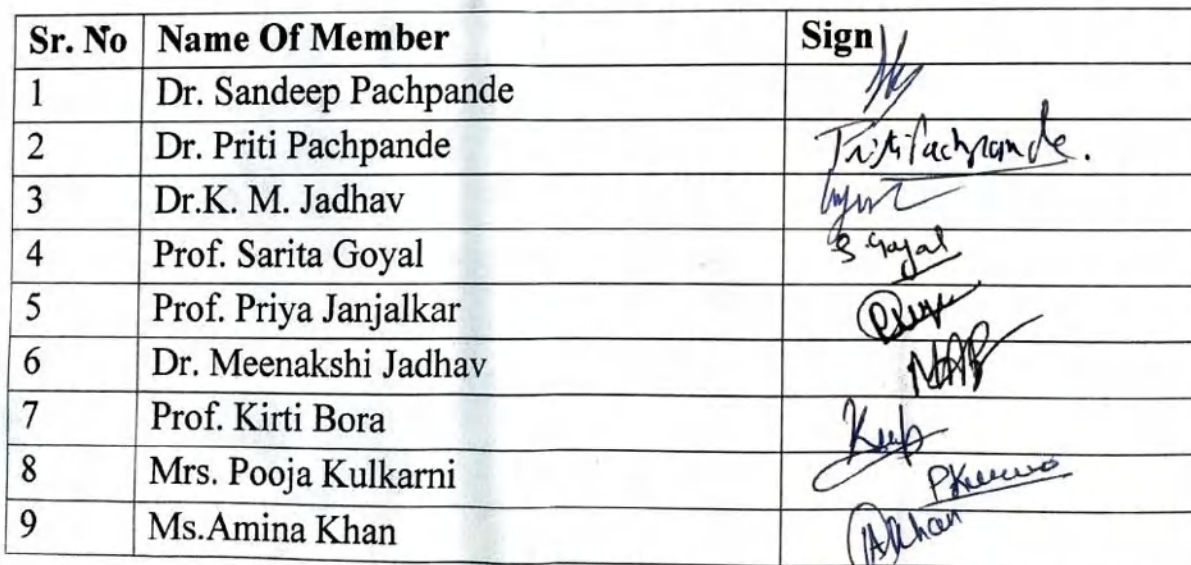 Sr. No Name Of Member Sign
1 Dr. Sandeep Pachpande
2 Dr. Priti Pachpande PritiPachpande.
3 Dr.K. M. Jadhav
4 Prof. Sarita Goyal S.Goyal
5 Prof. Priya Janjalkar
6 Dr. Meenakshi Jadhav
7 Prof. Kirti Bora
8 Mrs. Pooja Kulkarni
9 Ms.Amina Khan AKhan